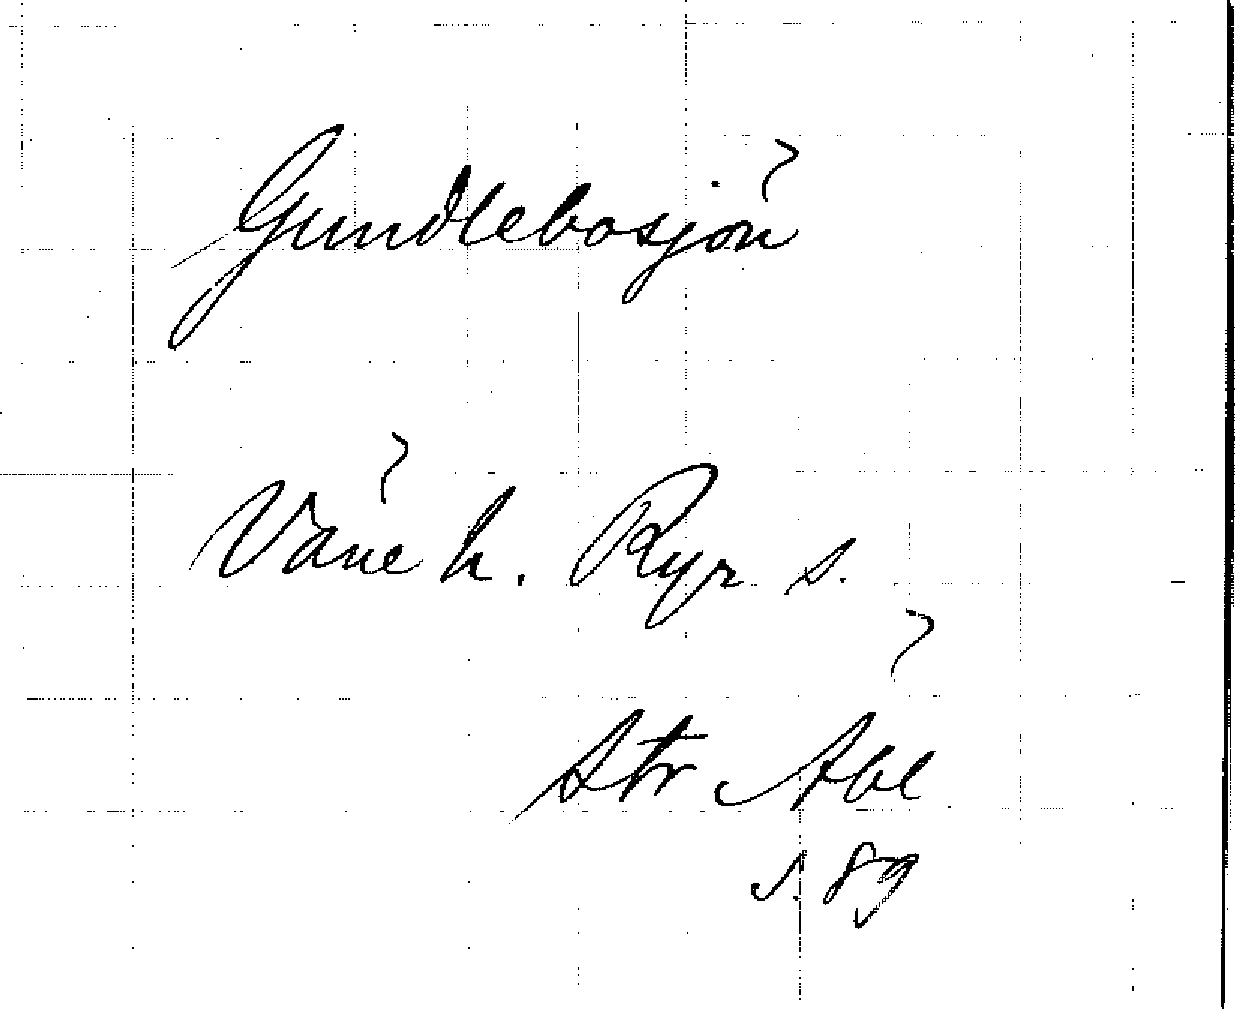 Gundlebosjön
Väne h. Ryr s.
Str Äbl
s. 89